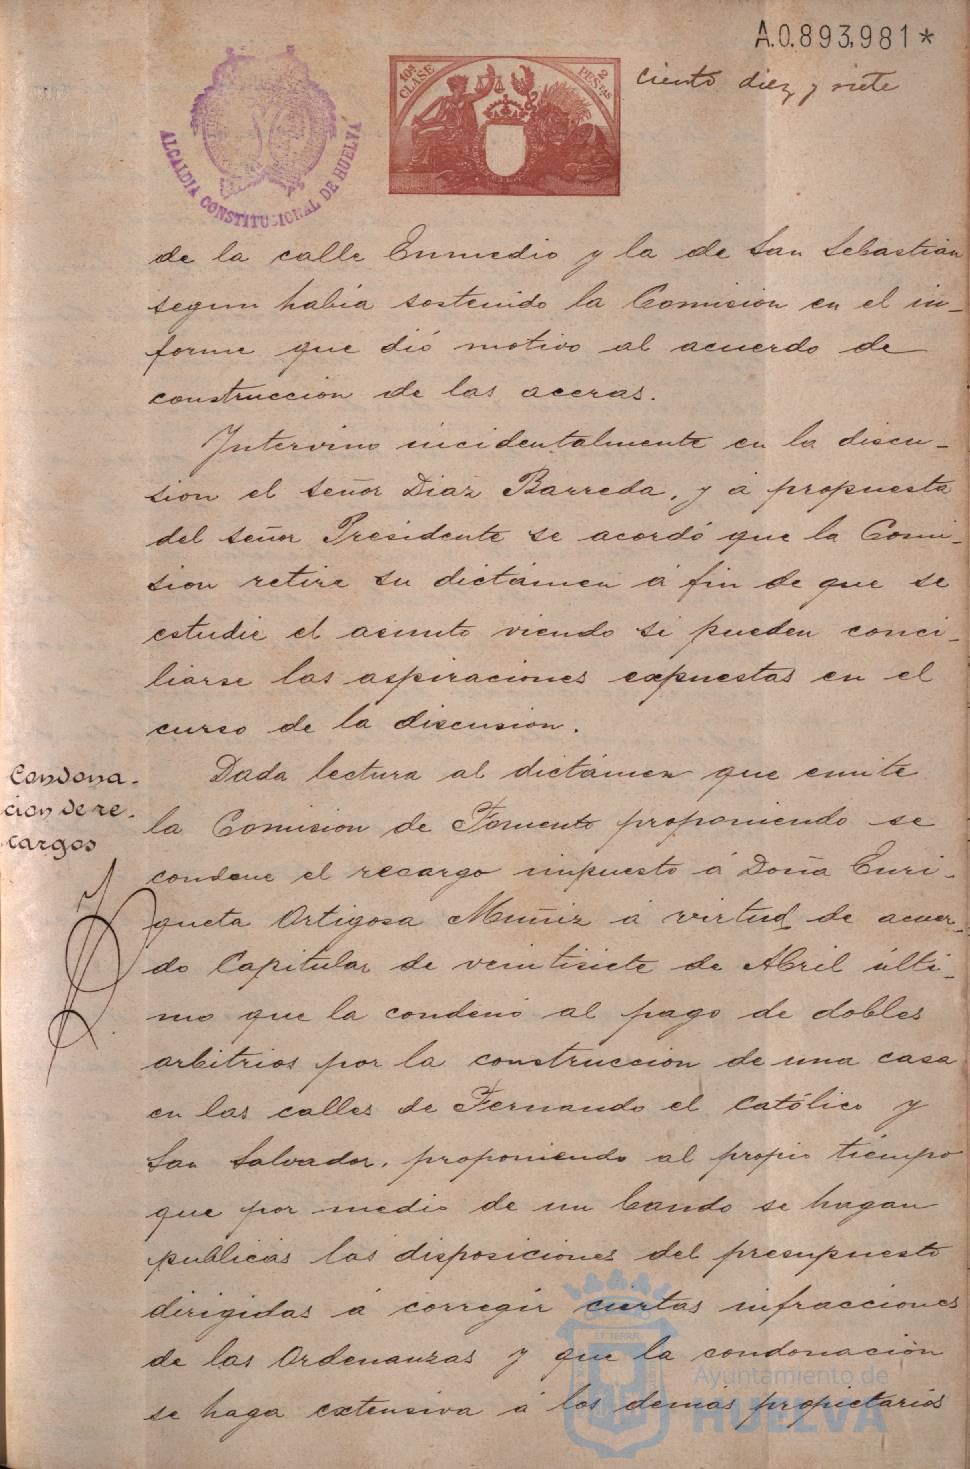 A.0.893,981*
ciento diez y siete
10ª CLASE
2 PESETAS
ALCALDIA CONSTITUCIONAL DE HUELVA
de la calle Enmedio y la de San Sebastián
segun había sostenido la Comision en el in-
forme que dió motivo al acuerdo de
construccion de las aceras.
Intervino incidentalmente en la discu-
sion el señor Diaz Barreda, y á propuesta
del señor Presidente se acordó que la Comi-
sion retire su dictámen á fin de que se
estudie el asunto viendo si pueden conci-
liarse las aspiraciones expuestas en el
curso de la discusion.
Condona-
cion de re-
cargos
Dada lectura al dictámen que emite
la Comision de Fomento proponiendo se
condone el recargo impuesto á Doña Enri-
queta Ortigosa Muñiz á virtud de acuer-
do Capitular de veintisiete de Abril últi-
mo que la condenó al pago de dobles
arbitrios por la construccion de una casa
en las calles de Fernando el Católico y
San Salvador, proponiendo al propio tiempo
que por medio de un bando se hagan
publicas las disposiciones del presupuesto
dirigidas á corregir ciertas infracciones
de las Ordenanzas y que la condonación
se haga extensiva á los demás propietarios
Ayuntamiento de
HUELVA